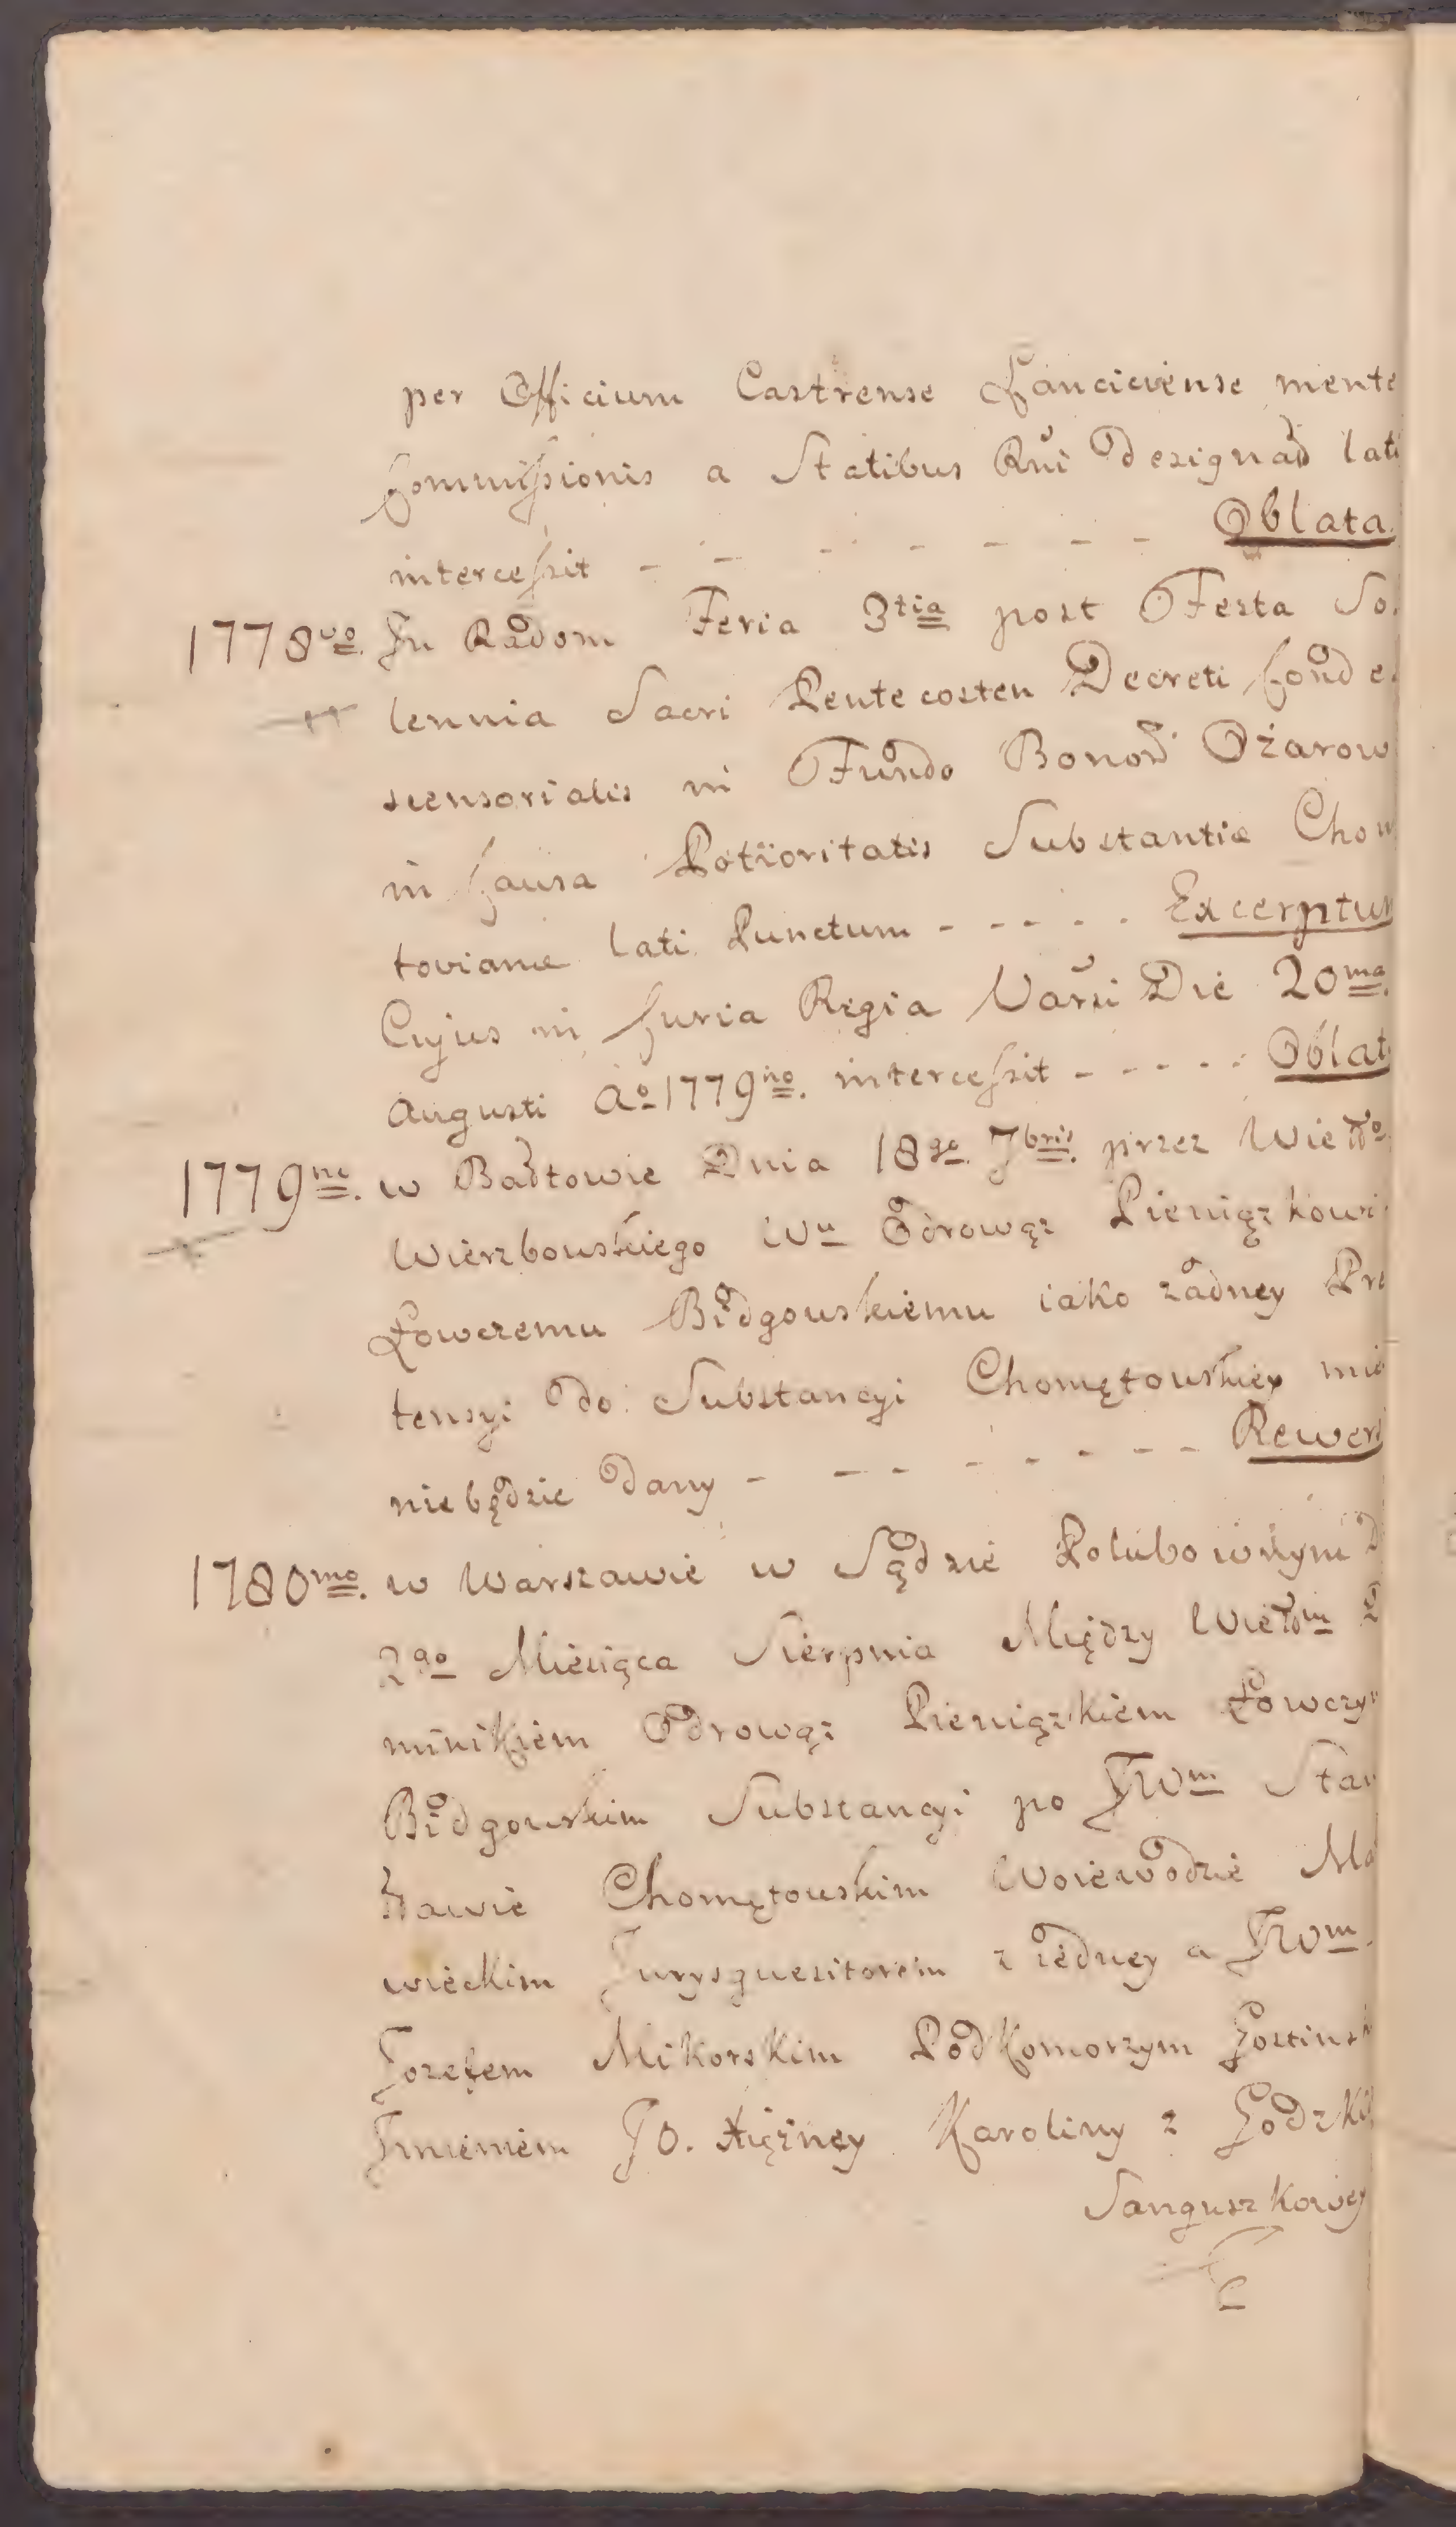 per Officium Castrense Łanciciense mente
Commissionis a Statibus Rni Designad lati
intercessit - - - - - - - Oblata.
1778vo. In Radom Feria 3tia post Festa So.
lennia Sacri Pentecosten Decreti Conde.
scensorialis in Fundo Bonor Ożarow
in Causa Potioritatis Substantiæ Chom
toviana lati Punctum - - - - - Excerptum
Cujus in Curia Regia Varsi Die 20ma.
Augusti Ao 1779no. intercessit - - - - - Oblat
1779no. w Baltowie Dnia 18go 7bris. przez Wielo
Wierzbowskiego Wu Odrowąz Pieniązkowi
Łowczemu Bidgowskiemu iako zadney Pre
tensyi do Substancyi Chomętowskiey mie
niebędzie dany - - - - - - - - Rewers
1780mo. w Warszawie w Sądzie Polubownym D
2go Miesiąca Sierpnia Między Wielm D
minikiem Odrowąz Pieniązkiem Łowczym
Bidgowskim Substancyi po JWm Stan
sławie Chomętowskim Woiewodzie Mazo
wieckim Jurysquesitorem z iedney a JWm.
Jozefem Mikorskim Podkomorzym Gostinsk
Jmieniem JO. Xiężney Karoliny z Gozdzki
Sanguszkowey